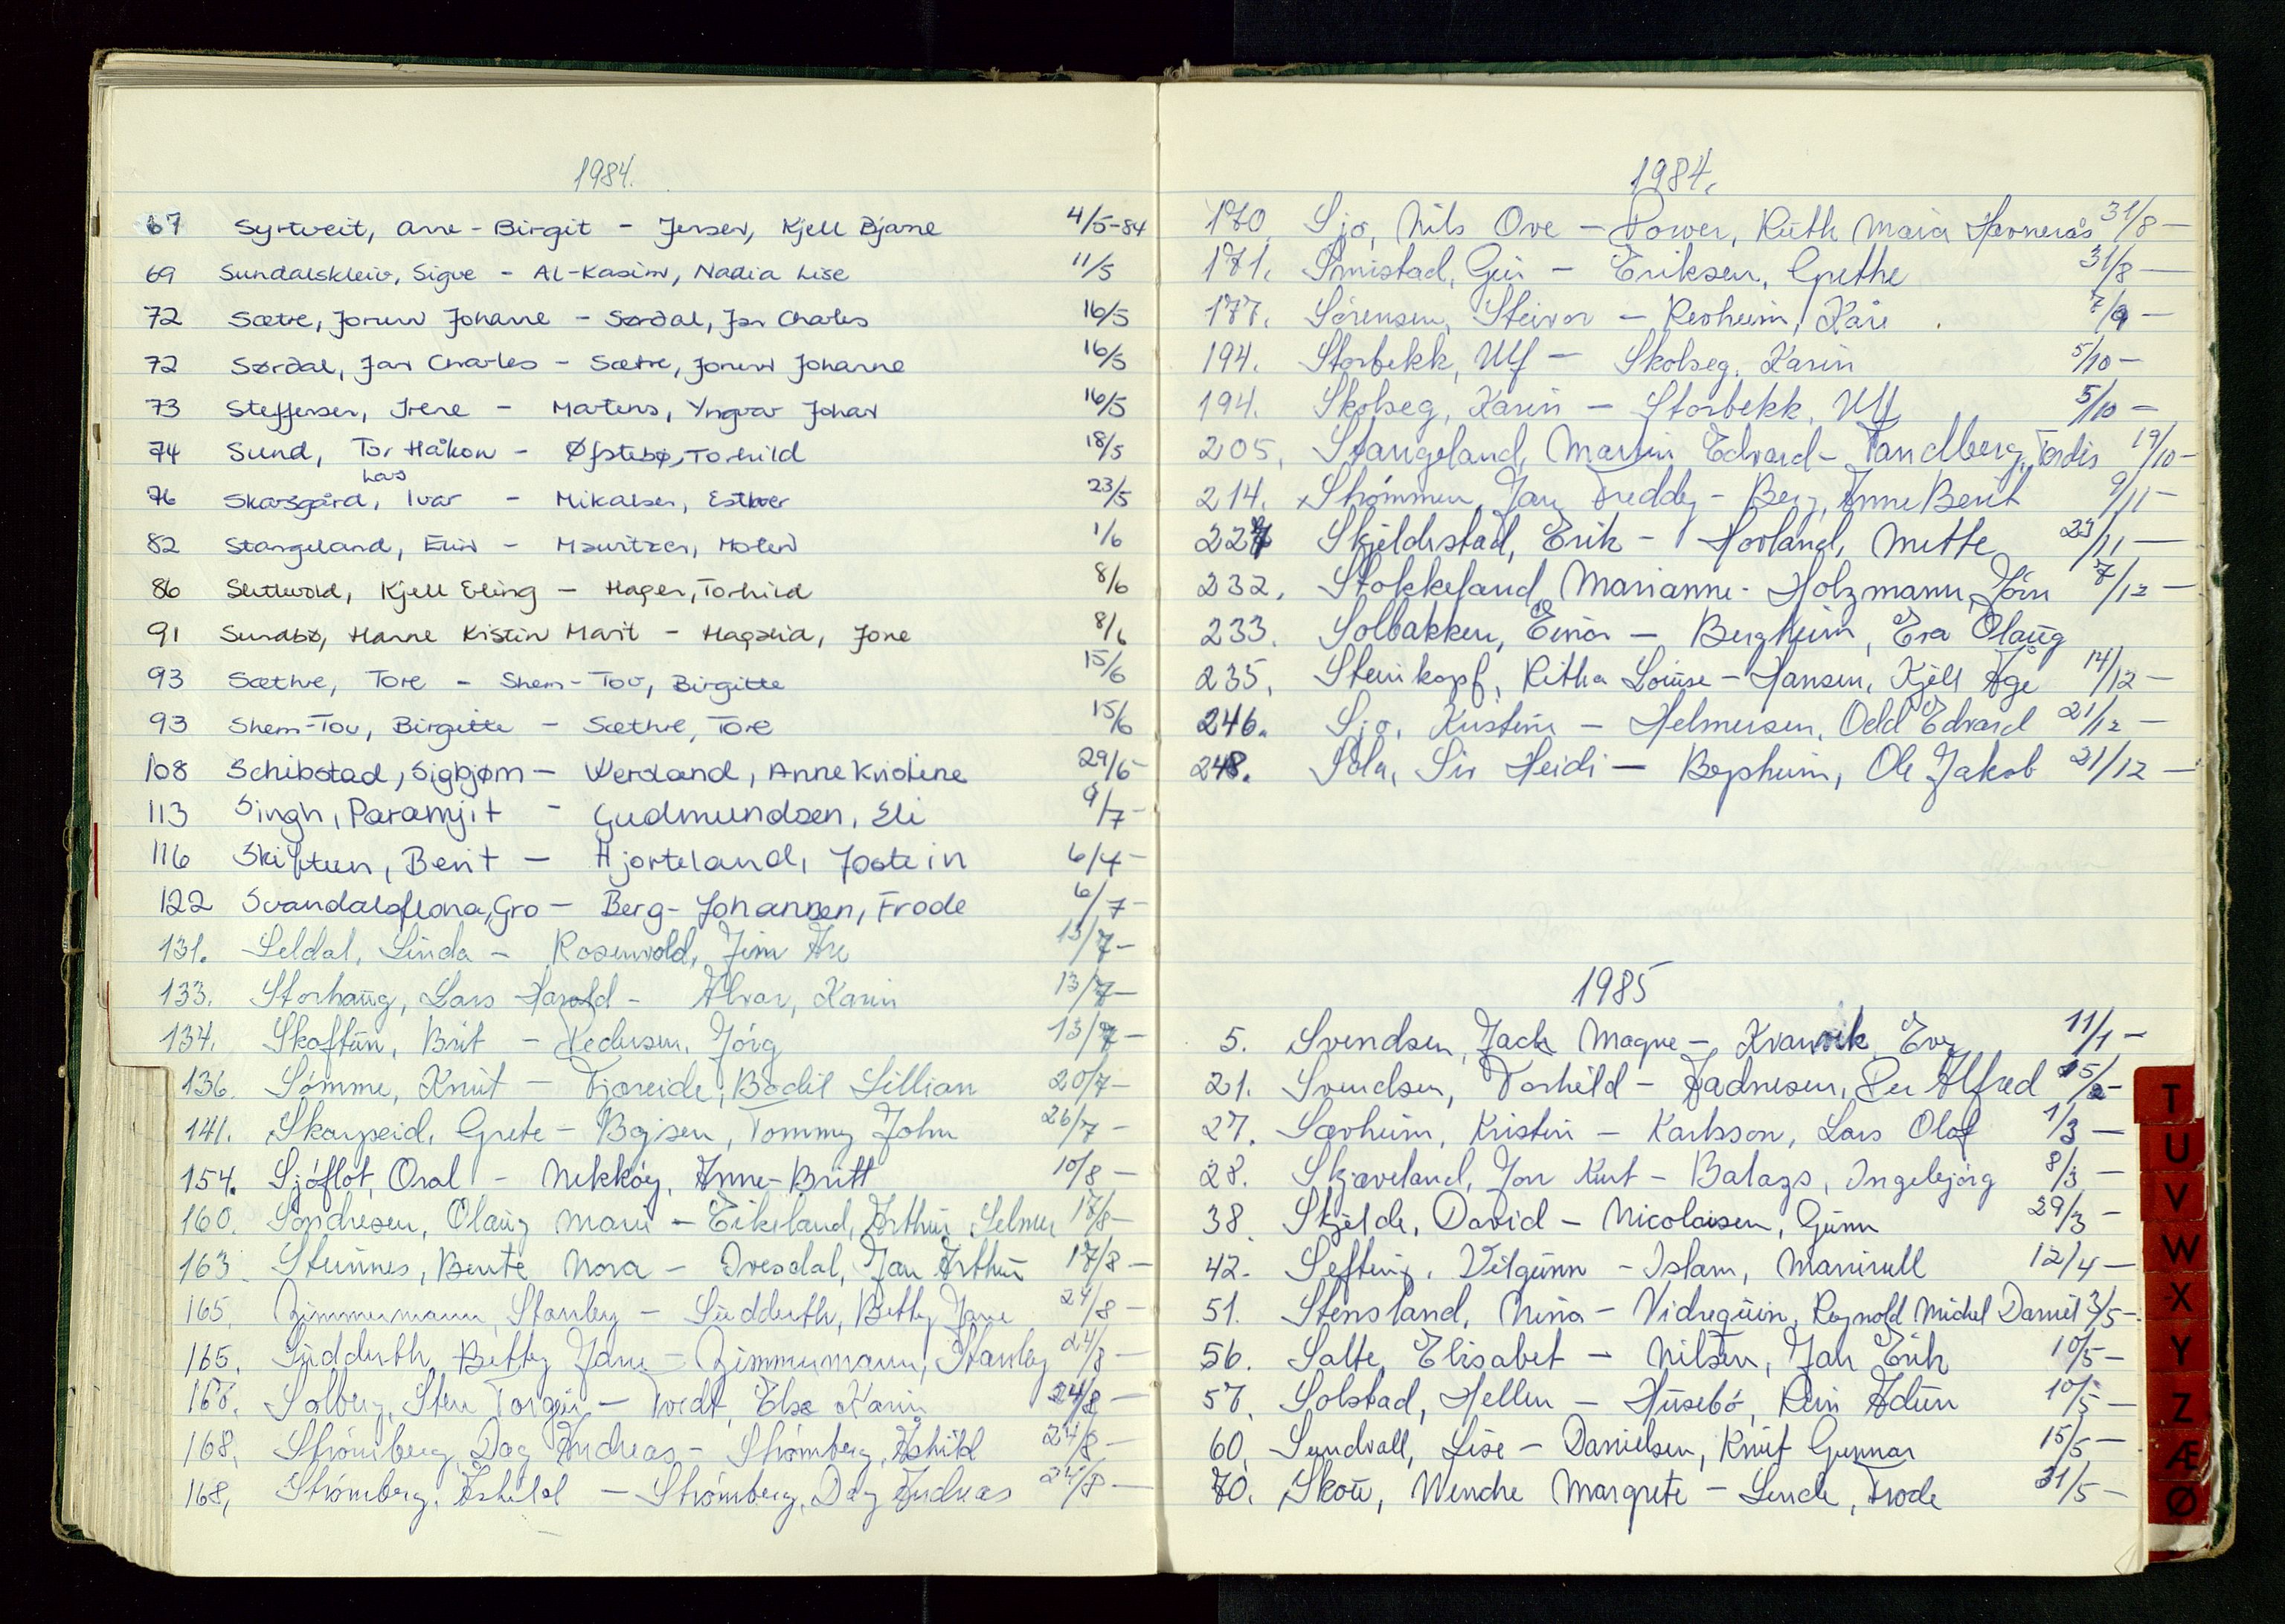 1984.
67 Syrtveit, Arne-Birgit - Jensen, Kjell Bjarne 4/5-84
69 Sundalskleiv, Sigve - Al-Kasim, Nadia Lise 11/5
72 Sætre, Jorunn Johanne - Sørdal, Jan Charles 16/5
72 Sørdal, Jan Charles - Sætre, Jorunn Johanne 16/5
73 Steffensen, Irene - Martens, Yngvar Johan 16/5
74 Sund, Tor Håkon - Øfstebø, Torhild 18/5
Lars
76 Skarsgård, Ivar - Mikalsen, Esther 23/5
82 Stangeland, Elin - Mauritzen, Morten 1/6
86 Slettvold, Kjell Erling - Hagen, Torhild 8/6
91 Sundbø, Hanne Kristin Marit - Hagalid, Jone 8/6
93 Sæthre, Tore - Shem-Tov, Birgitte 15/6
93 Shem-Tov, Birgitte - Sæthre, Tore 15/6
108 Schibstad, Sigbjørn - Versland, Anne Kristine 29/6-
113 Singh, Paramjit - Gudmundsen, Eli 9/7-
116 Skiftun, Berit - Hjorteland, Jostein 6/4-
122 Svandalsflona, Gro - Berg-Johannsen, Frode 6/7-
131. Seldal, Linda - Rosenvold, Jim Are 13/7-
133. Storhaug, Lars Harald - Alvar, Karin 13/7-
134. Skaftun, Brit - Pedersen, Jörg 13/7-
136. Sömme, Knut - Fjæreide, Bodil Lillian 20/7-
141. Skarpeid, Grete - Bojsen, Tommy John 26/7-
154. Sjöflot, Oral - Nekköy, Anne-Britt 10/8-
160. Sondresen, Olaug Marie - Eikeland, Arthur Selmer 17/8-
163. Steinnes, Bente Nora - Ivesdal, Jan Arthur 17/8-
165. Zimmermann, Stanley - Sudderth, Betty Jane 24/8-
165. Sudderth, Betty Jane - Zimmermann, Stanley 24/8-
166. Solberg, Sten Torgeir - Tvedt, Else Karin 24/8-
168. Strömberg, Dag Andreas - Strömberg, Ashild 24/8-
168. Strömberg, Ashild - Strömberg, Dag Andreas 24/8-
1984.
170 Sjo, Nils Ove - Power, Ruth Maria Havnerås 31/8-
171. Smistad, Geir - Eriksen, Grethe 31/8-
177. Sörensen, Steivor - Revheim, Kåre 7/9-
194. Storbekk, Ulf - Skolseg, Karin 5/10-
194. Skolseg, Karin - Storbekk, Ulf 5/10-
205. Stangeland, Martin Edvard - Tandberg, Tordis 19/10-
214. Strömmen, Jan Freddy - Berg, Anne Berit 9/11-
227 Skjeldestad, Erik - Hovland, Mette 23/11-
232. Stokkeland, Marianne - Holzmann, Jörn 7/12-
233. Solbakken, Einar - Bergheim, Eva Olaug
235. Steinkopf, Ritha Louise - Hansen, Kjell Åge 14/12-
246. Sjo, Kristine - Helmersen, Odd Edvard 21/12-
248. Sola, Siv Heidi - Bepheim, Ole Jakob 21/12-
1985
5. Svendsen, Jack Magne - Kvamvik, Evy 11/1-
21. Svendsen, Torhild - Aadnesen, Per Alfred 15/2-
27. Sævheim, Kristin - Karlsson, Lars Olof 1/3-
28. Skjæveland, Jon Kurt - Balazs, Ingebjörg 8/3-
38. Skjelde, David - Nicolaisen, Gunn 29/3-
42. Sefteig, Vilgunn - Islam, Manirull 12/4-
51. Stensland, Nina - Vidreguin, Reynold Michel Daniel 3/5-
56. Salte, Elisabet - Nilsen, Jan Erik 10/5-
57. Solstad, Hellen - Husebö, Rein Adun 10/5-
60. Sundvall, Lise - Danielsen, Knut Gunnar 15/5-
70. Skou, Wenche Margrete - Lende, Frode 31/5-
T
U
V
W
X
Y
Z
Æ
Ø